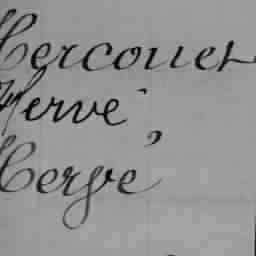 Hercouet
Hervé
Hergé